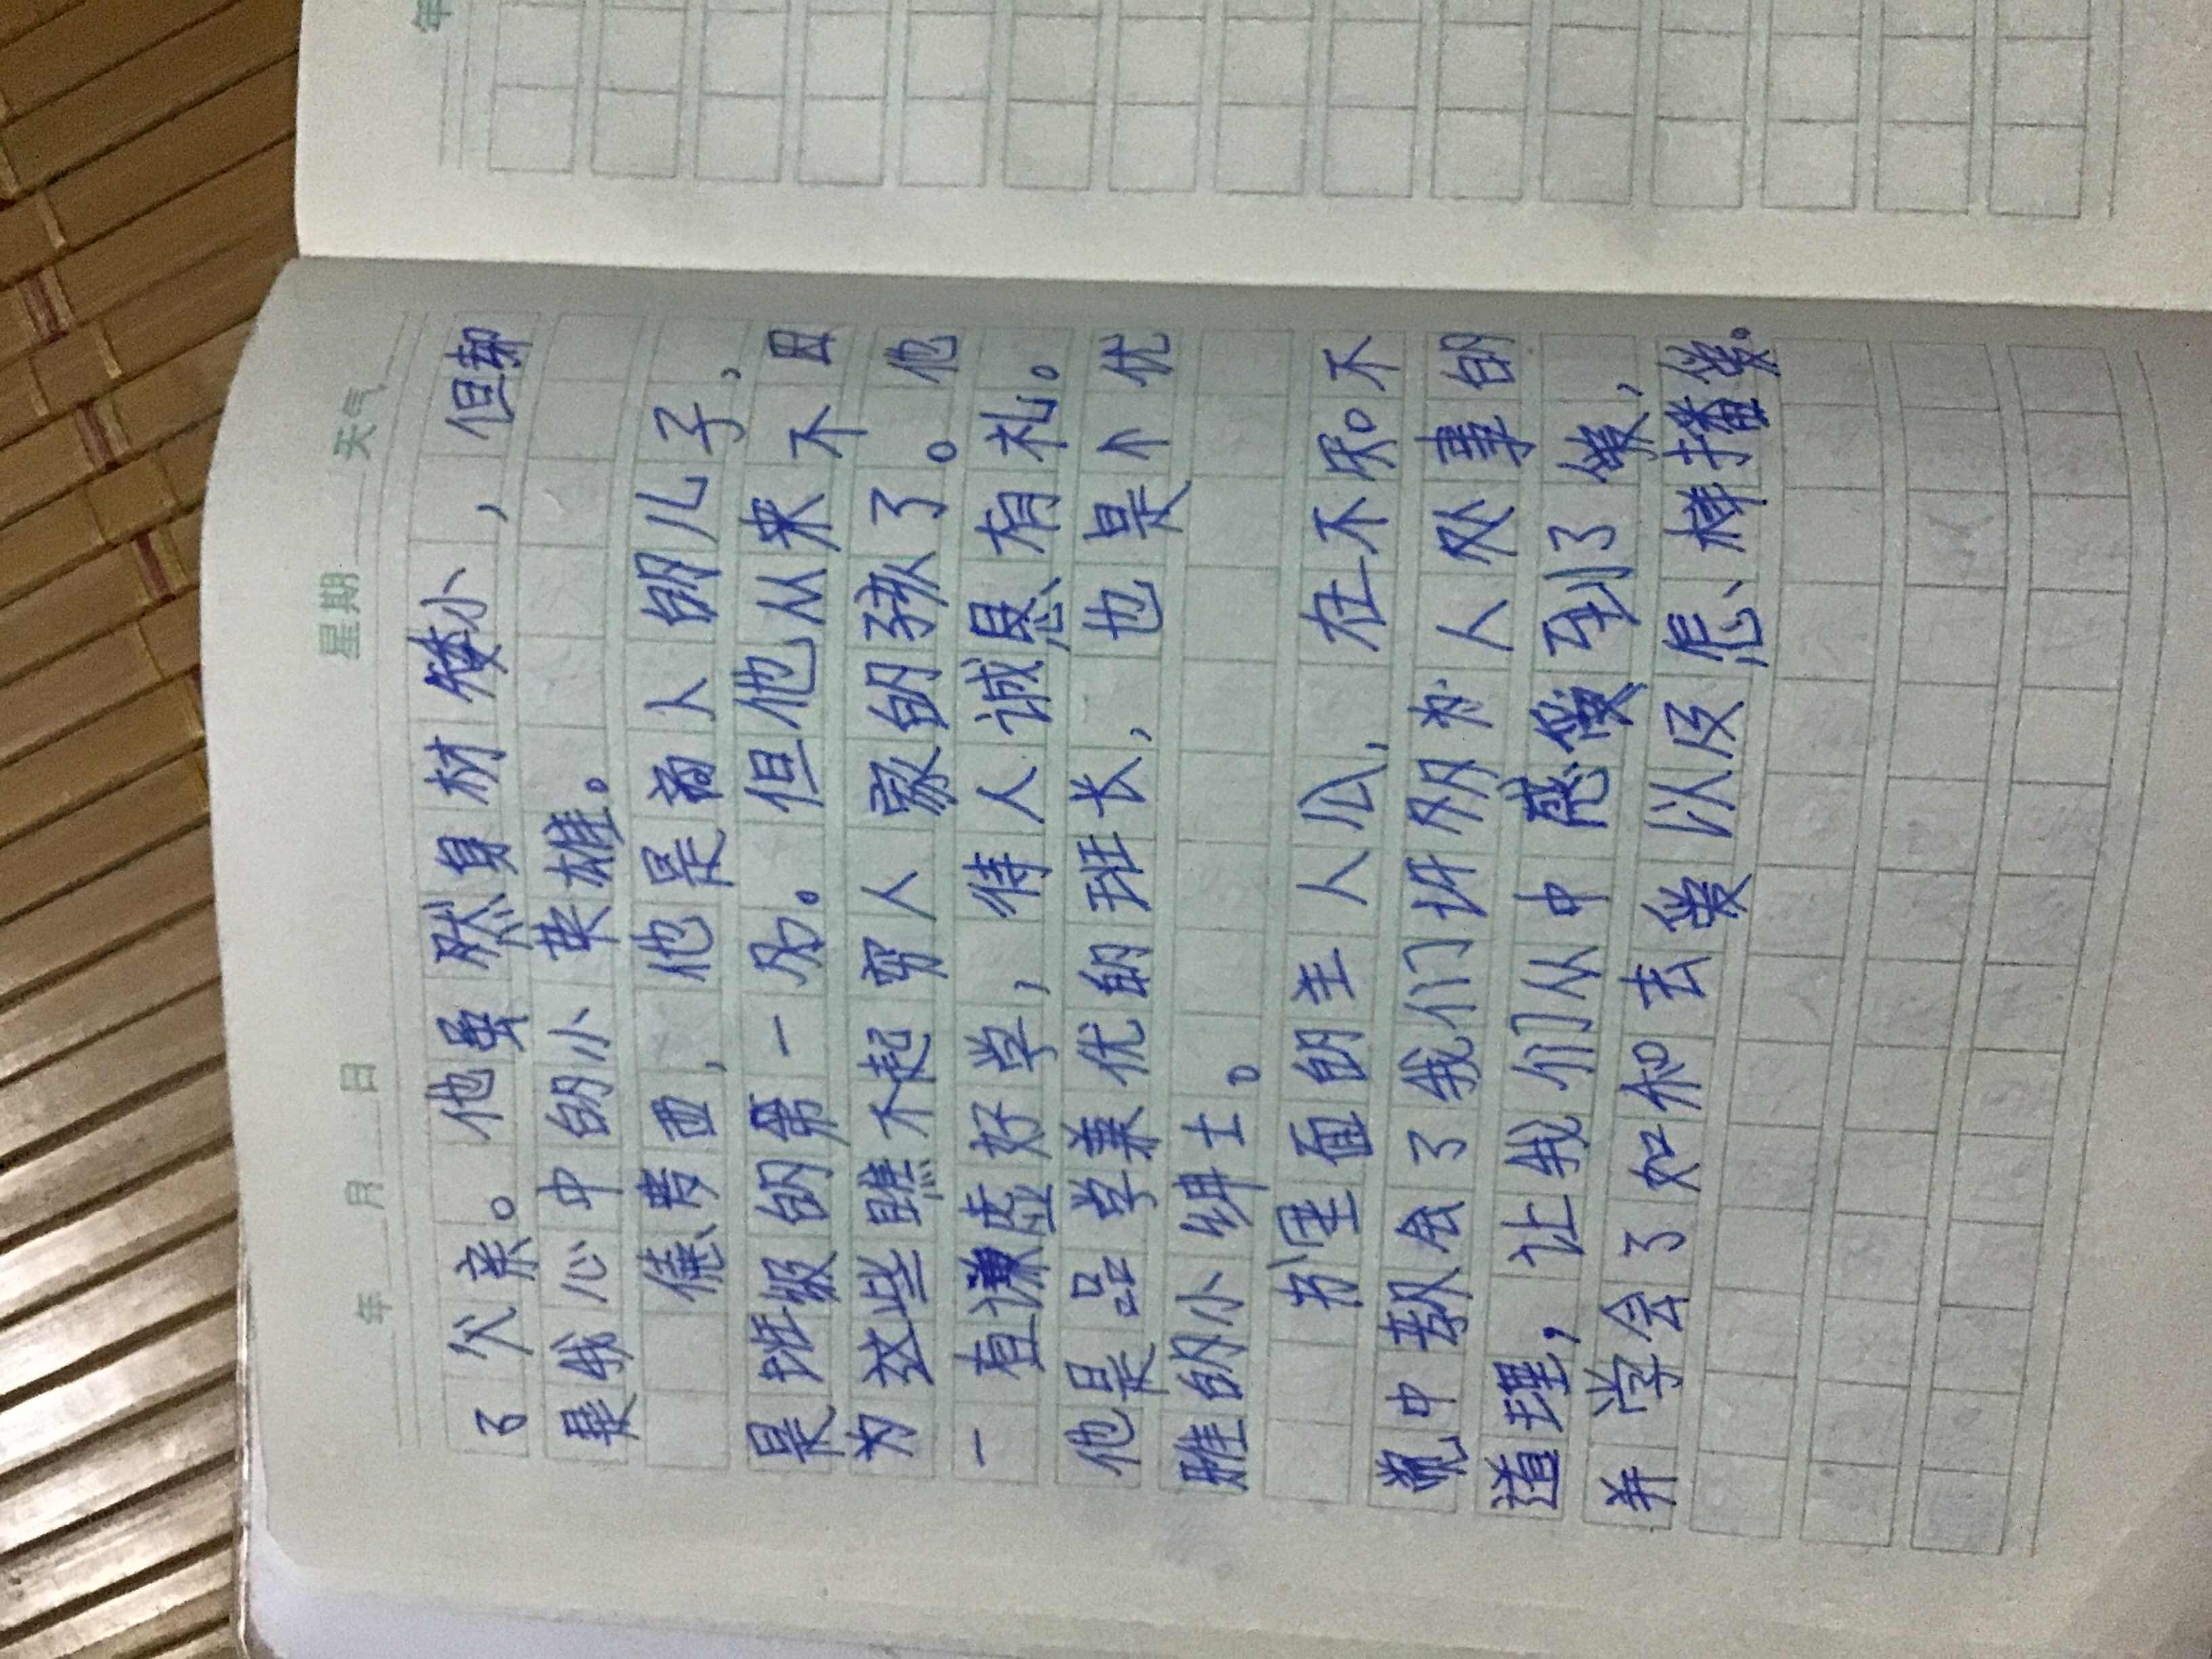 年 月 日 星期 天气
了父亲。他虽然身材矮小，但却
是我心中的小英雄。
德罗西，他是商人的儿子，
是班级的第一名。但他从来不且
为这些瞧不起穷人家的孩了。他
一直谦虚好学，待人诚恳有礼。
他是品学兼优的班长，也是个优
雅的小绅士。
书里面的主人公，在不知不
觉中教会了我们许多为人处事的
道理，让我们从中感受到了爱，
并学会了如何去爱以及怎样播爱。
年